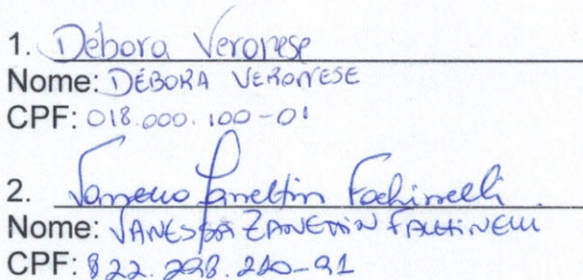 1. Débora Veronese
Nome: DÉBORA VERONESE
CPF: 018.000.100-01
2. Vanessa Zanettin Fachinelli
Nome: VANESSA ZANETTIN FACHINELLI
CPF: 822.298.220-91